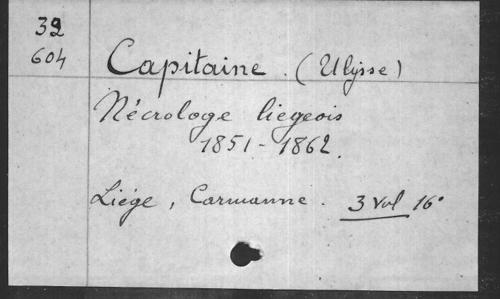 39
604
Capitaine. (Ulysse)
Nécrologe liégeois
1851-1862.
Liége, Carmanne. 3 vol 16°